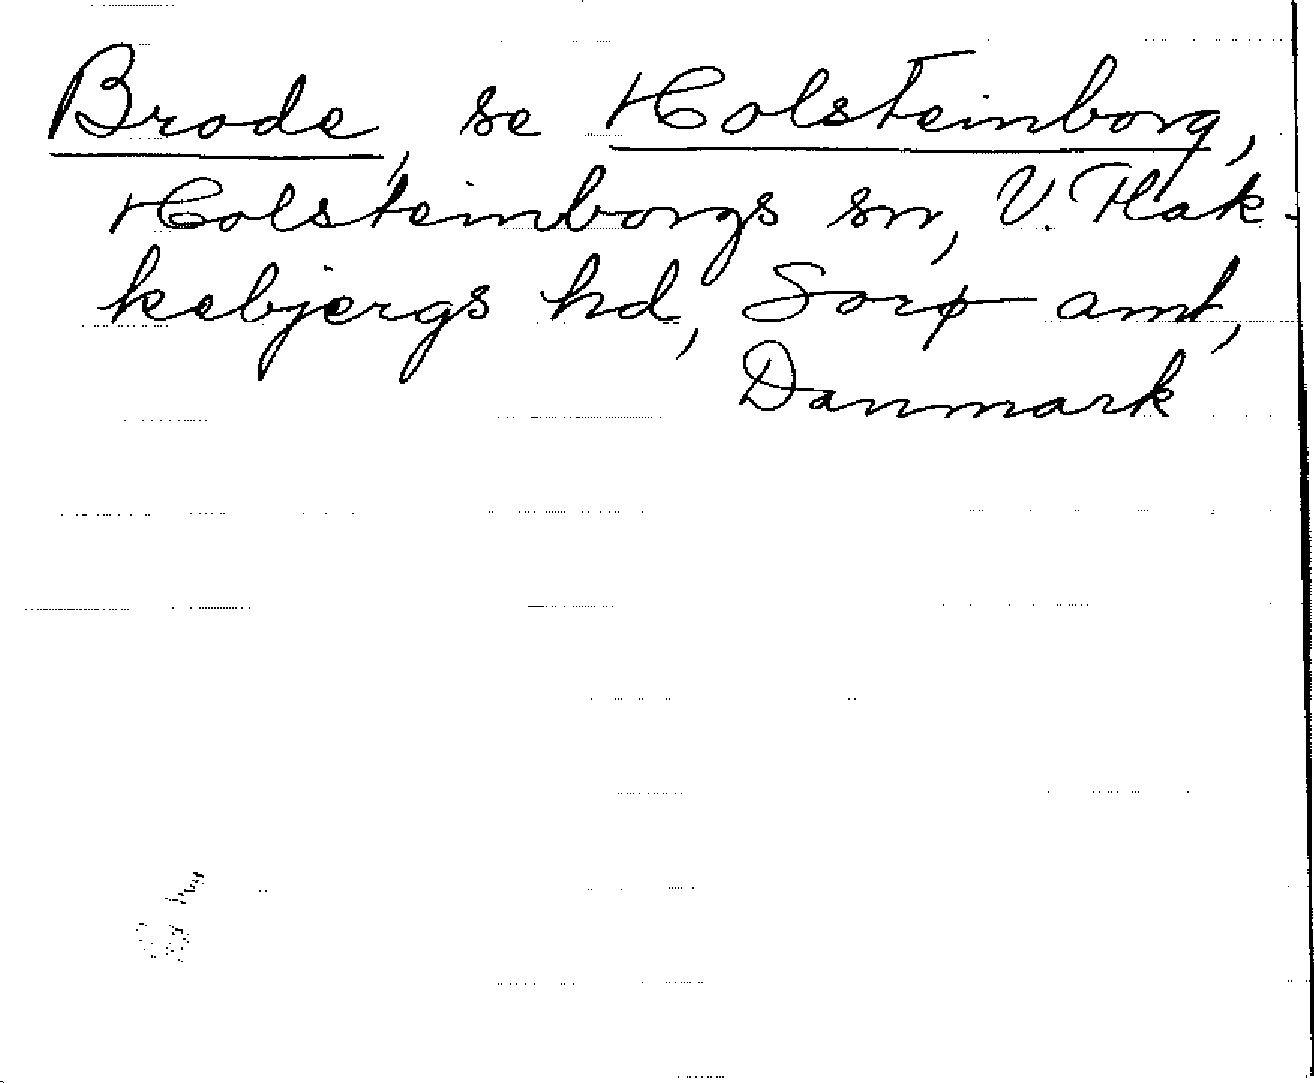 Brode, se Holsteinborg,
Holsteinborgs sn, V. Flak-
kebjergs hd, Sorø amt,
Danmark